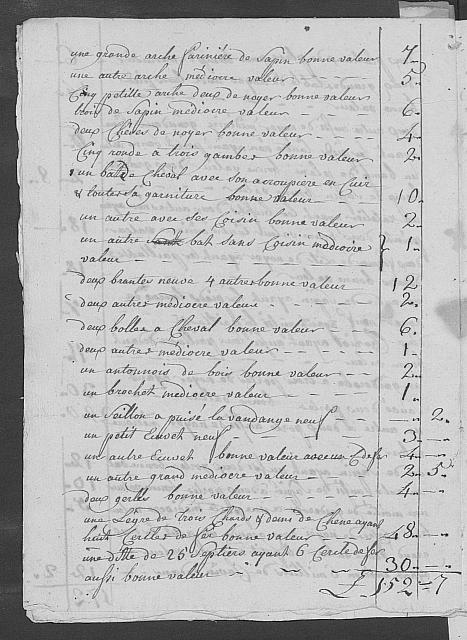 une grande arche farinière de Sapin bonne valeur 7-
une autre arche médiocre valeur 5-
Cinq petitte arche deux de noyer bonne valeur
trois de Sapin médiocre valeur - - 6-
deux Chères de noyer bonne valeur - 4-
Cinq ronde a trois gambes bonne valeur 2-
un bat de Cheval avec son acroupière en Cuir
& toutte sa garniture bonne valeur - - 10-
un autre avec ses Coisin bonne valeur 2-
un autre bat sans Coisin médiocre } 1-
valeur - - - - - -
deux brantes neuve 4 autres bonne valeur 12
deux autres médiocre valeur - - - - 2-
deux bolles a Cheval bonne valeur - - 6-
deux autres médiocre valeur - - - - 1-
un antonnois de bois bonne valeur - - 2-
un brochet médiocre valeur - - - 1-
un Soillon a puisé la vandange neuf - - - - 2-
un petit Euvet neuf - - - - 3-
un autre Euvet bonne valeur avec un C. de fer 4-
un autre grand médiocre valeur - - 2-5-
deux gerles bonne valeur - - - - 4-
une Lègre de trois Chards & demi de Chene ayant
huit Cercles de fer bonne valeur - - 48-
une ditte de 25 Septiers ayant 6 Cercle de fer
aussi bonne valeur - - - - 30-
L 152-7